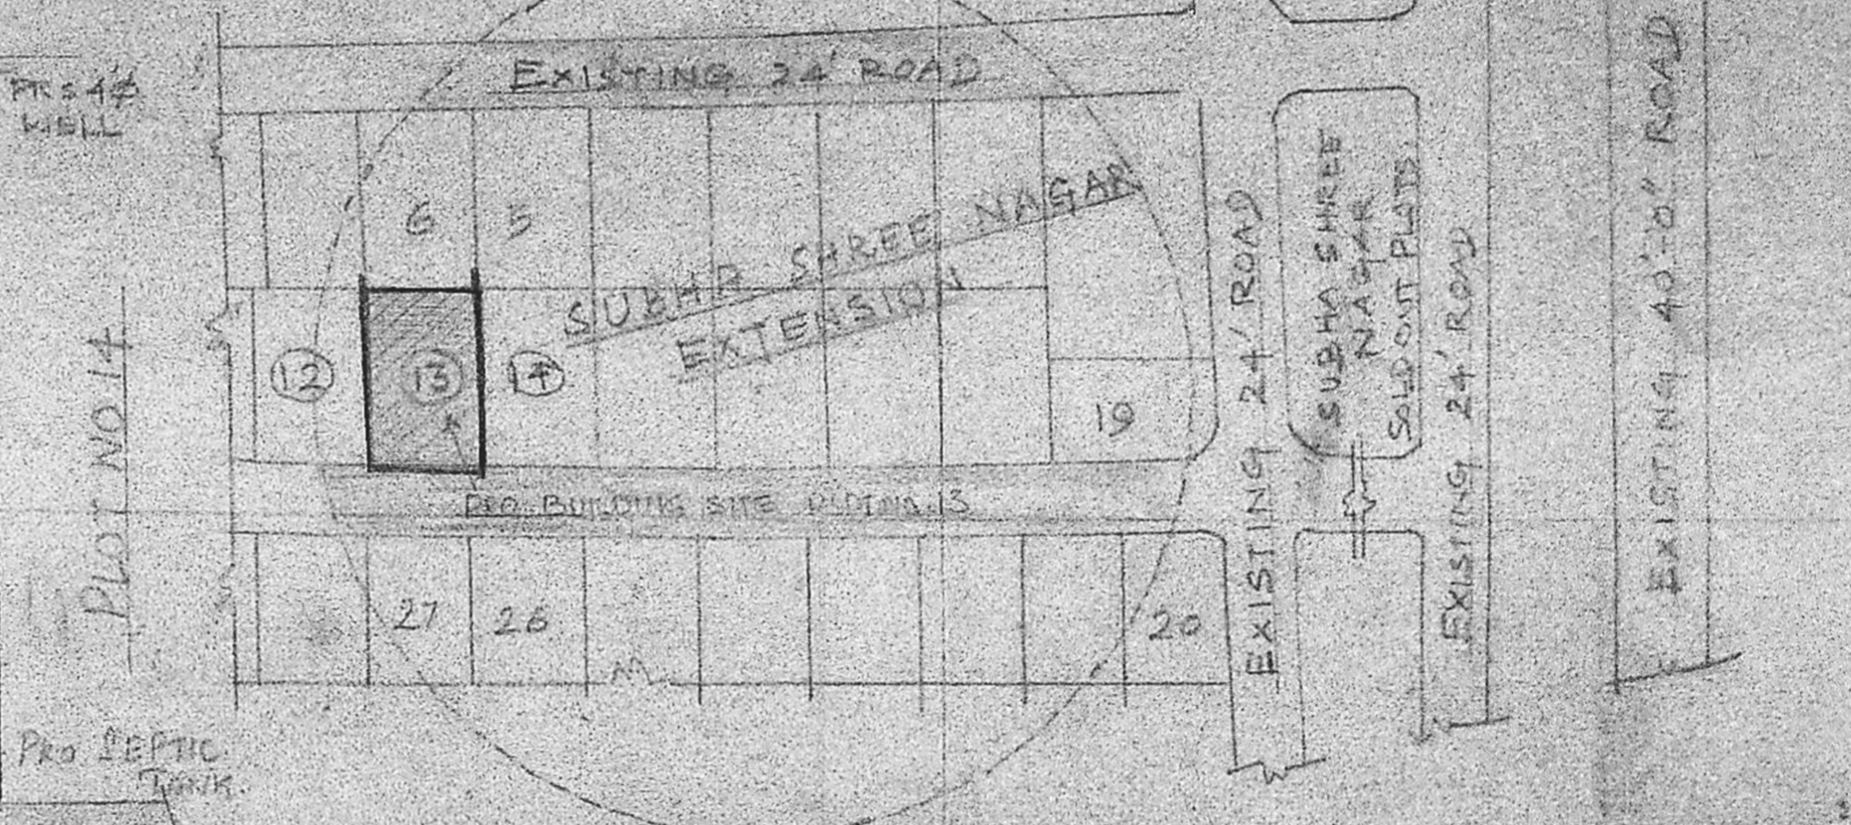 EXISTING 24' ROAD
WELL
6
5
SUBHA SHREE NAGAR
EXTENSION
12
13
14
19
PRO. BUILDING SITE PLOT NO. 13
27
26
20
PLOT NO 14
EXISTING 24' ROAD
SUBHA SHREE
NAGAR
SOLD OUT PLOTS
EXISTING 24' ROAD
EXISTING 40'-0" ROAD
PRO SEPTIC
TANK